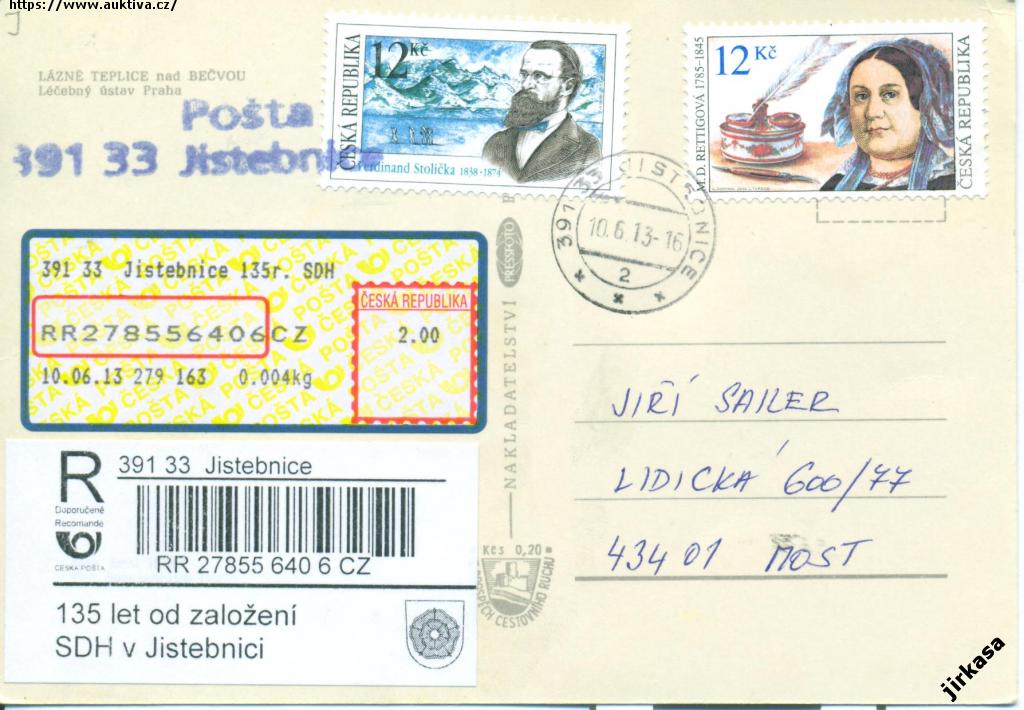 https://www.auktiva.cz/
LÁZNĚ TEPLICE nad BEČVOU
Léčebný ústav Praha
Pošta
391 33 Jistebnice
ČESKÁ REPUBLIKA
12 Kč
Ferdinand Stolička 1838-1874
12 Kč
M.D. RETTIGOVÁ 1785-1845
ČESKÁ REPUBLIKA
391 33 JISTEBNICE
10.6.13-16
2
391 33 Jistebnice 135r. SDH
RR278556406CZ
10.06.13 279 163 0.004kg
ČESKÁ REPUBLIKA
2.00
PRESSFOTO
NAKLADATELSTVÍ
Kčs 0,20
CESTOVNÍHO RUCHU
R
Doporučeně
Recomandé
ČESKÁ POŠTA
391 33 Jistebnice
RR 27855 640 6 CZ
135 let od založení
SDH v Jistebnici
JIŘÍ SAILER
LIDICKÁ 600/77
434 01 MOST
jirkasa